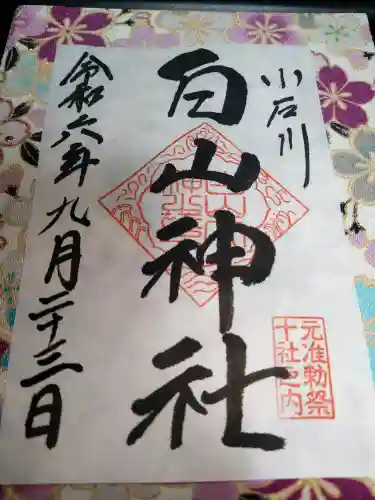 小石川
白山神社
元准勅祭
十社之内
令和六年九月二十三日